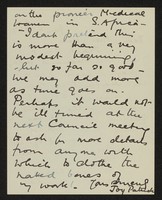 on the pioneer Medical
women in S. Africa -
"I don't pretend this
is more than a very
modest beginning,
but so far so good -
we may add more
as time goes on.
Perhaps it would not
be ill timed at the
next Council meeting
to ask for more details
from any with
which to clothe the
naked bones of
my work! Yours sincerely
Joy